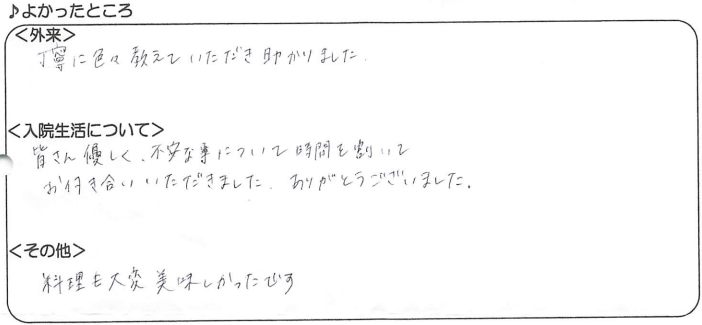 ♪よかったところ
<外来>
丁寧に色々教えていただき助かりました.
<入院生活について>
皆さん優しく、不安な事について時間を割いて
お付き合いいただきました. ありがとうございました.
<その他>
料理も大変美味しかったです